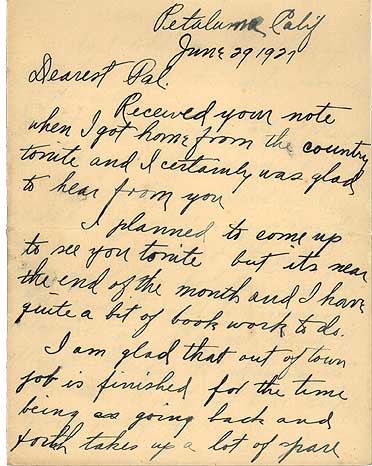 Petaluma Calif
June 29 1927
Dearest Pal.
Received your note
when I got home from the country
tonite and I certainly was glad
to hear from you
I planned to come up
to see you tonite but its near
the end of the month and I have
quite a bit of book work to do.
I am glad that out of town
job is finished for the time
being as going back and
forth takes up a lot of spare